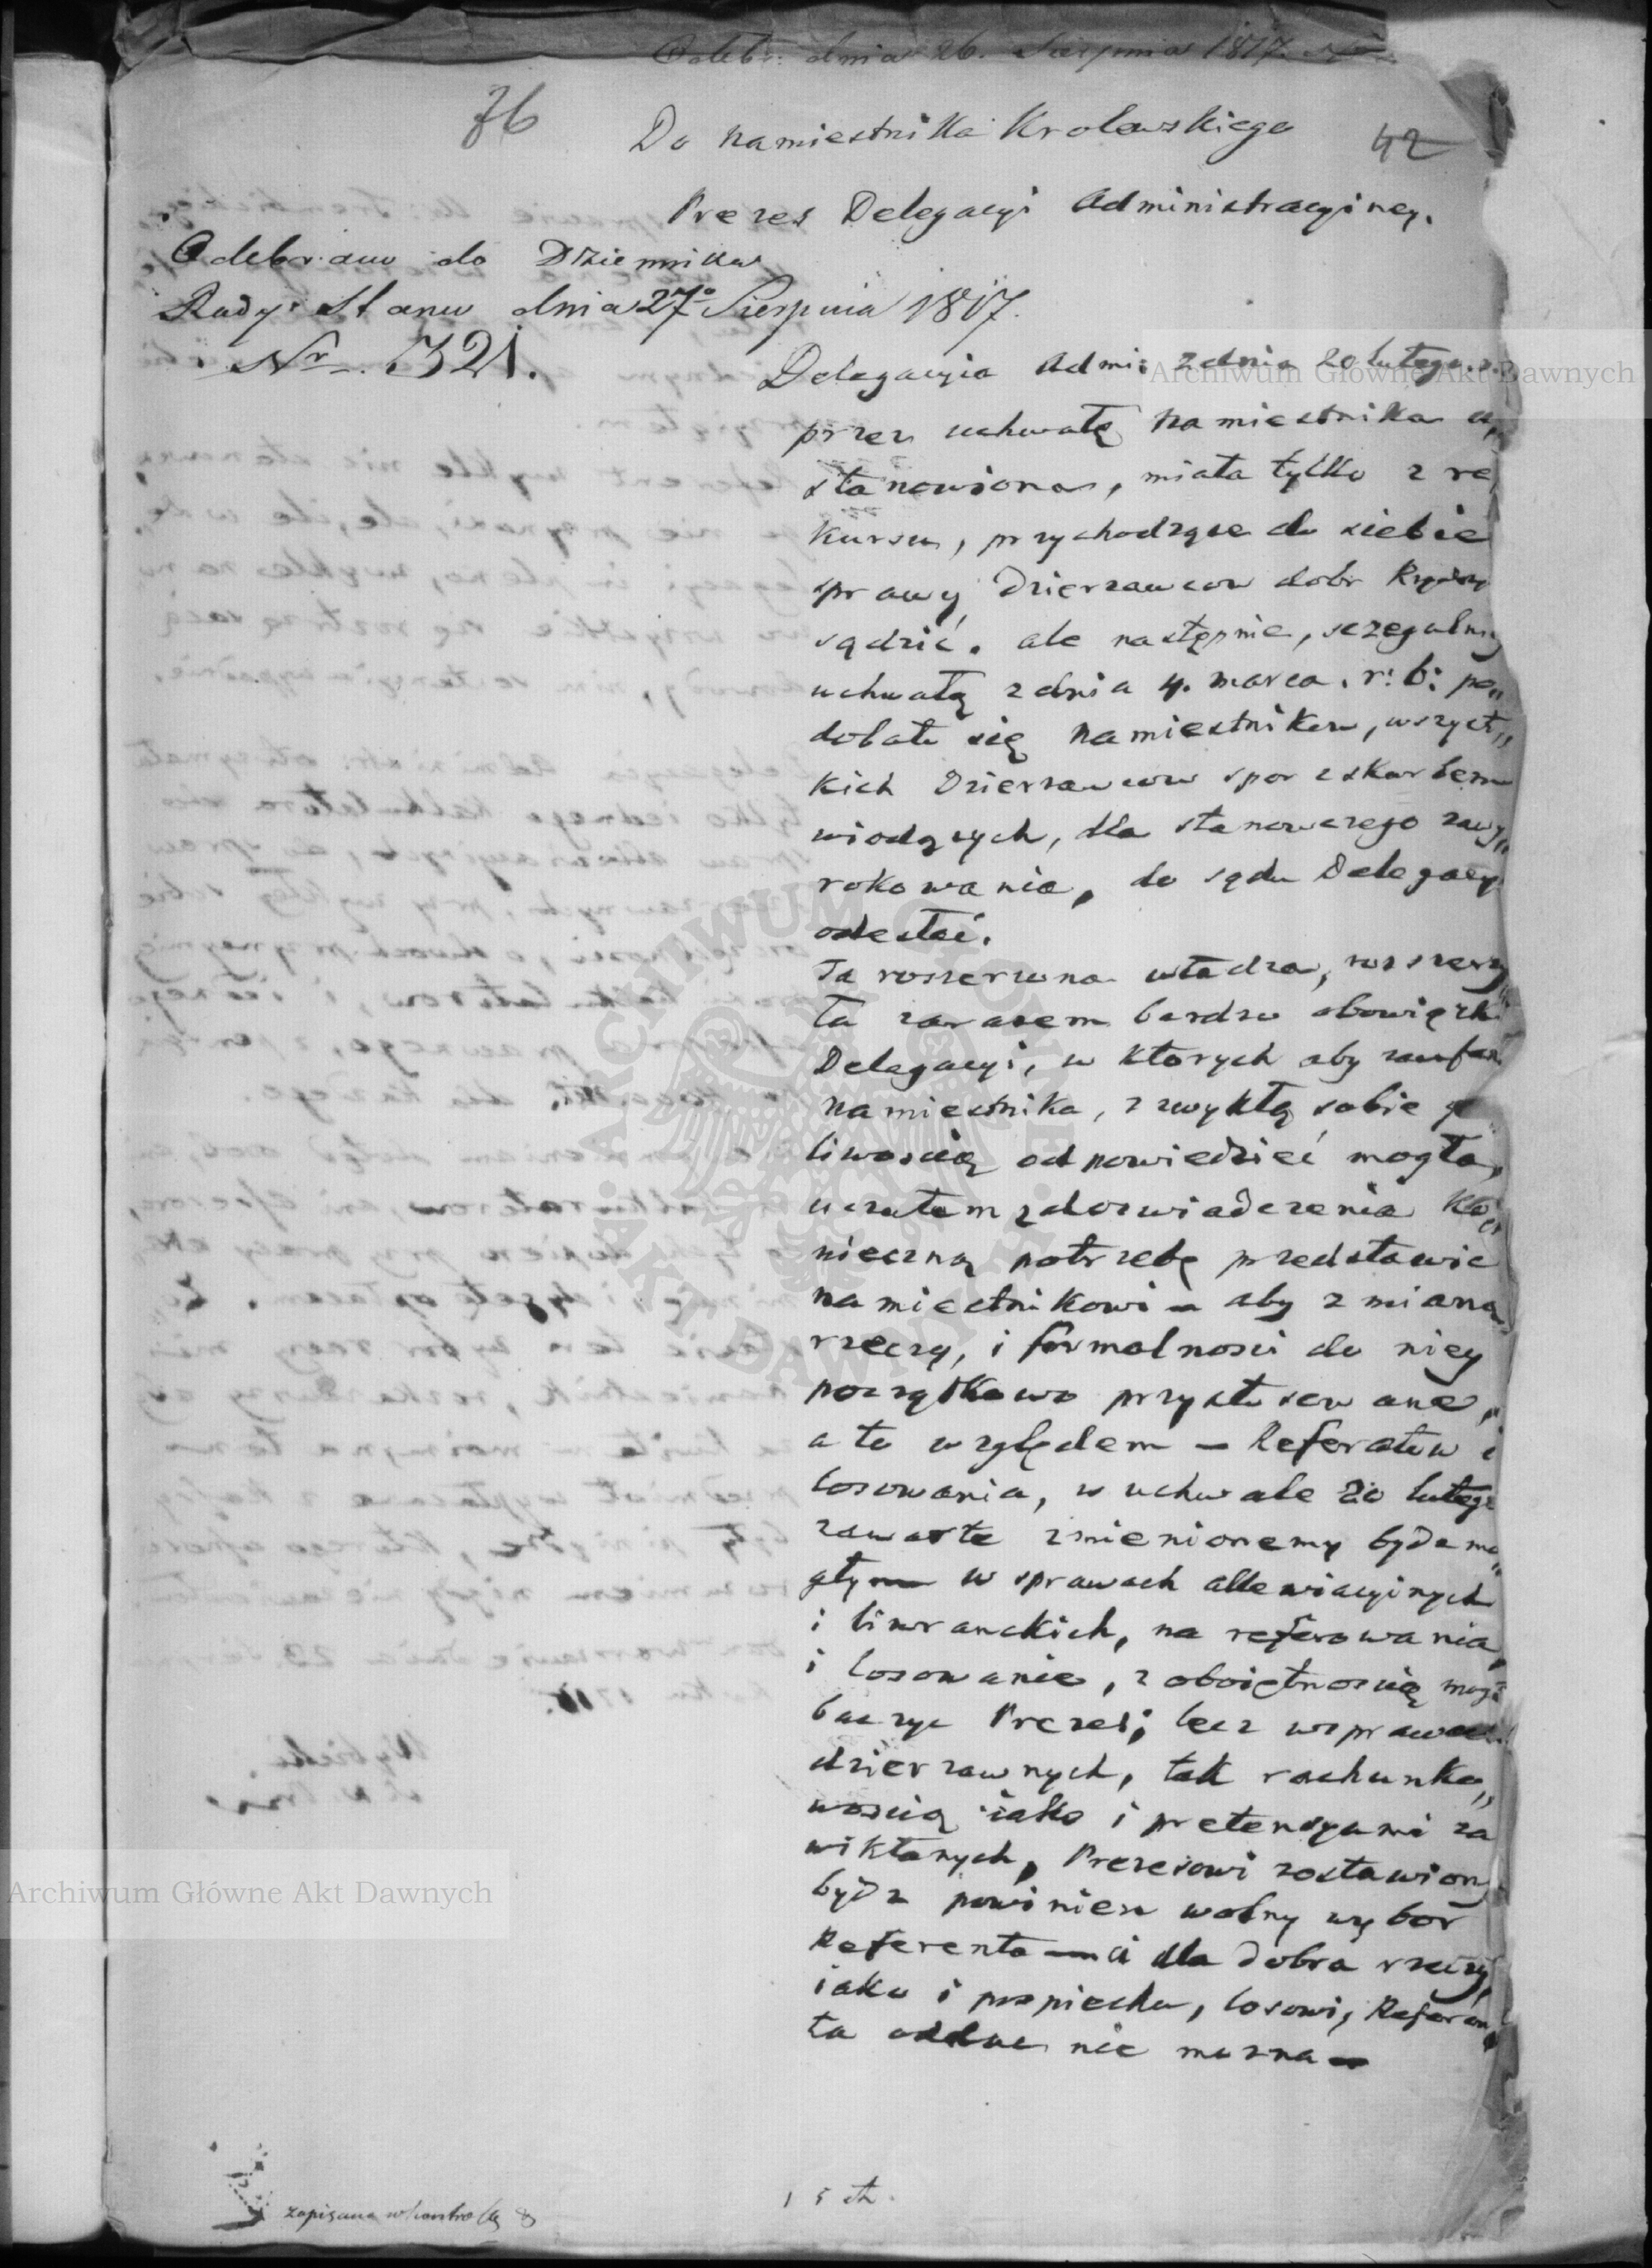 Odebr: dnia 26. Sierpnia 1817.
36
Do Namiestnika Krolewskiego
42
Prezes Delegacyi Administracyiney.
Odebrano do Dziennika
Rady Stanu dnia 27o Sierpnia 1817.
Nr. 321.
Delegacyia Admi: z dnia 20 lutego. r.
przez uchwałę Namiestnika u,,
stanowiona, miała tylko z re
kursu, przychodzące do siebie
sprawy Dzierzawcow dobr Rządowy
sądzić. ale następnie, szczegulną
uchwałą z dnia 4. marca. r: b: po,,
dobało się Namiestnikow, wszyst,,
kich Dzierzawcow spor z skarbem
wiodących, dla stanowczego zawy,,
rokowania, do sądu Delegacyi
odesłać.
Ta rosszerzona władza, rosszerzy
ła zarazem bardzo obowiązki
Delegacyi, w ktorych aby zaufan
Namiestnika, z zwykłą sobie g
liwością odpowiedzieć mogła,
uczułem z doswiadczenia ko,,
nieczną potrzebę przedstawic
Namiestnikowi – aby z mianą
rzeczy, i formalnosci do niey
początkowo przystosowane,
a to względem – Referatow i
losowania, w uchwale 20 lutego
zawarte zmienionemi bydz mo,,
gły – w sprawach allewiacyinych
i liwranckich, na referowania
i losowanie, z oboiętnoscią mogł
baczyc Prezes; lecz w sprawach
dzierzawnych, tak rachunko,,
woscią iako i pretensyami za
wikłanych, Prezesowi zostawiony
bydz powinien wolny wybor
Referenta – a dla dobra rzeczy,
iako i pospiechu, losowi, Referen
ta oddac nie mozna –
zapisano w kontrolę 8